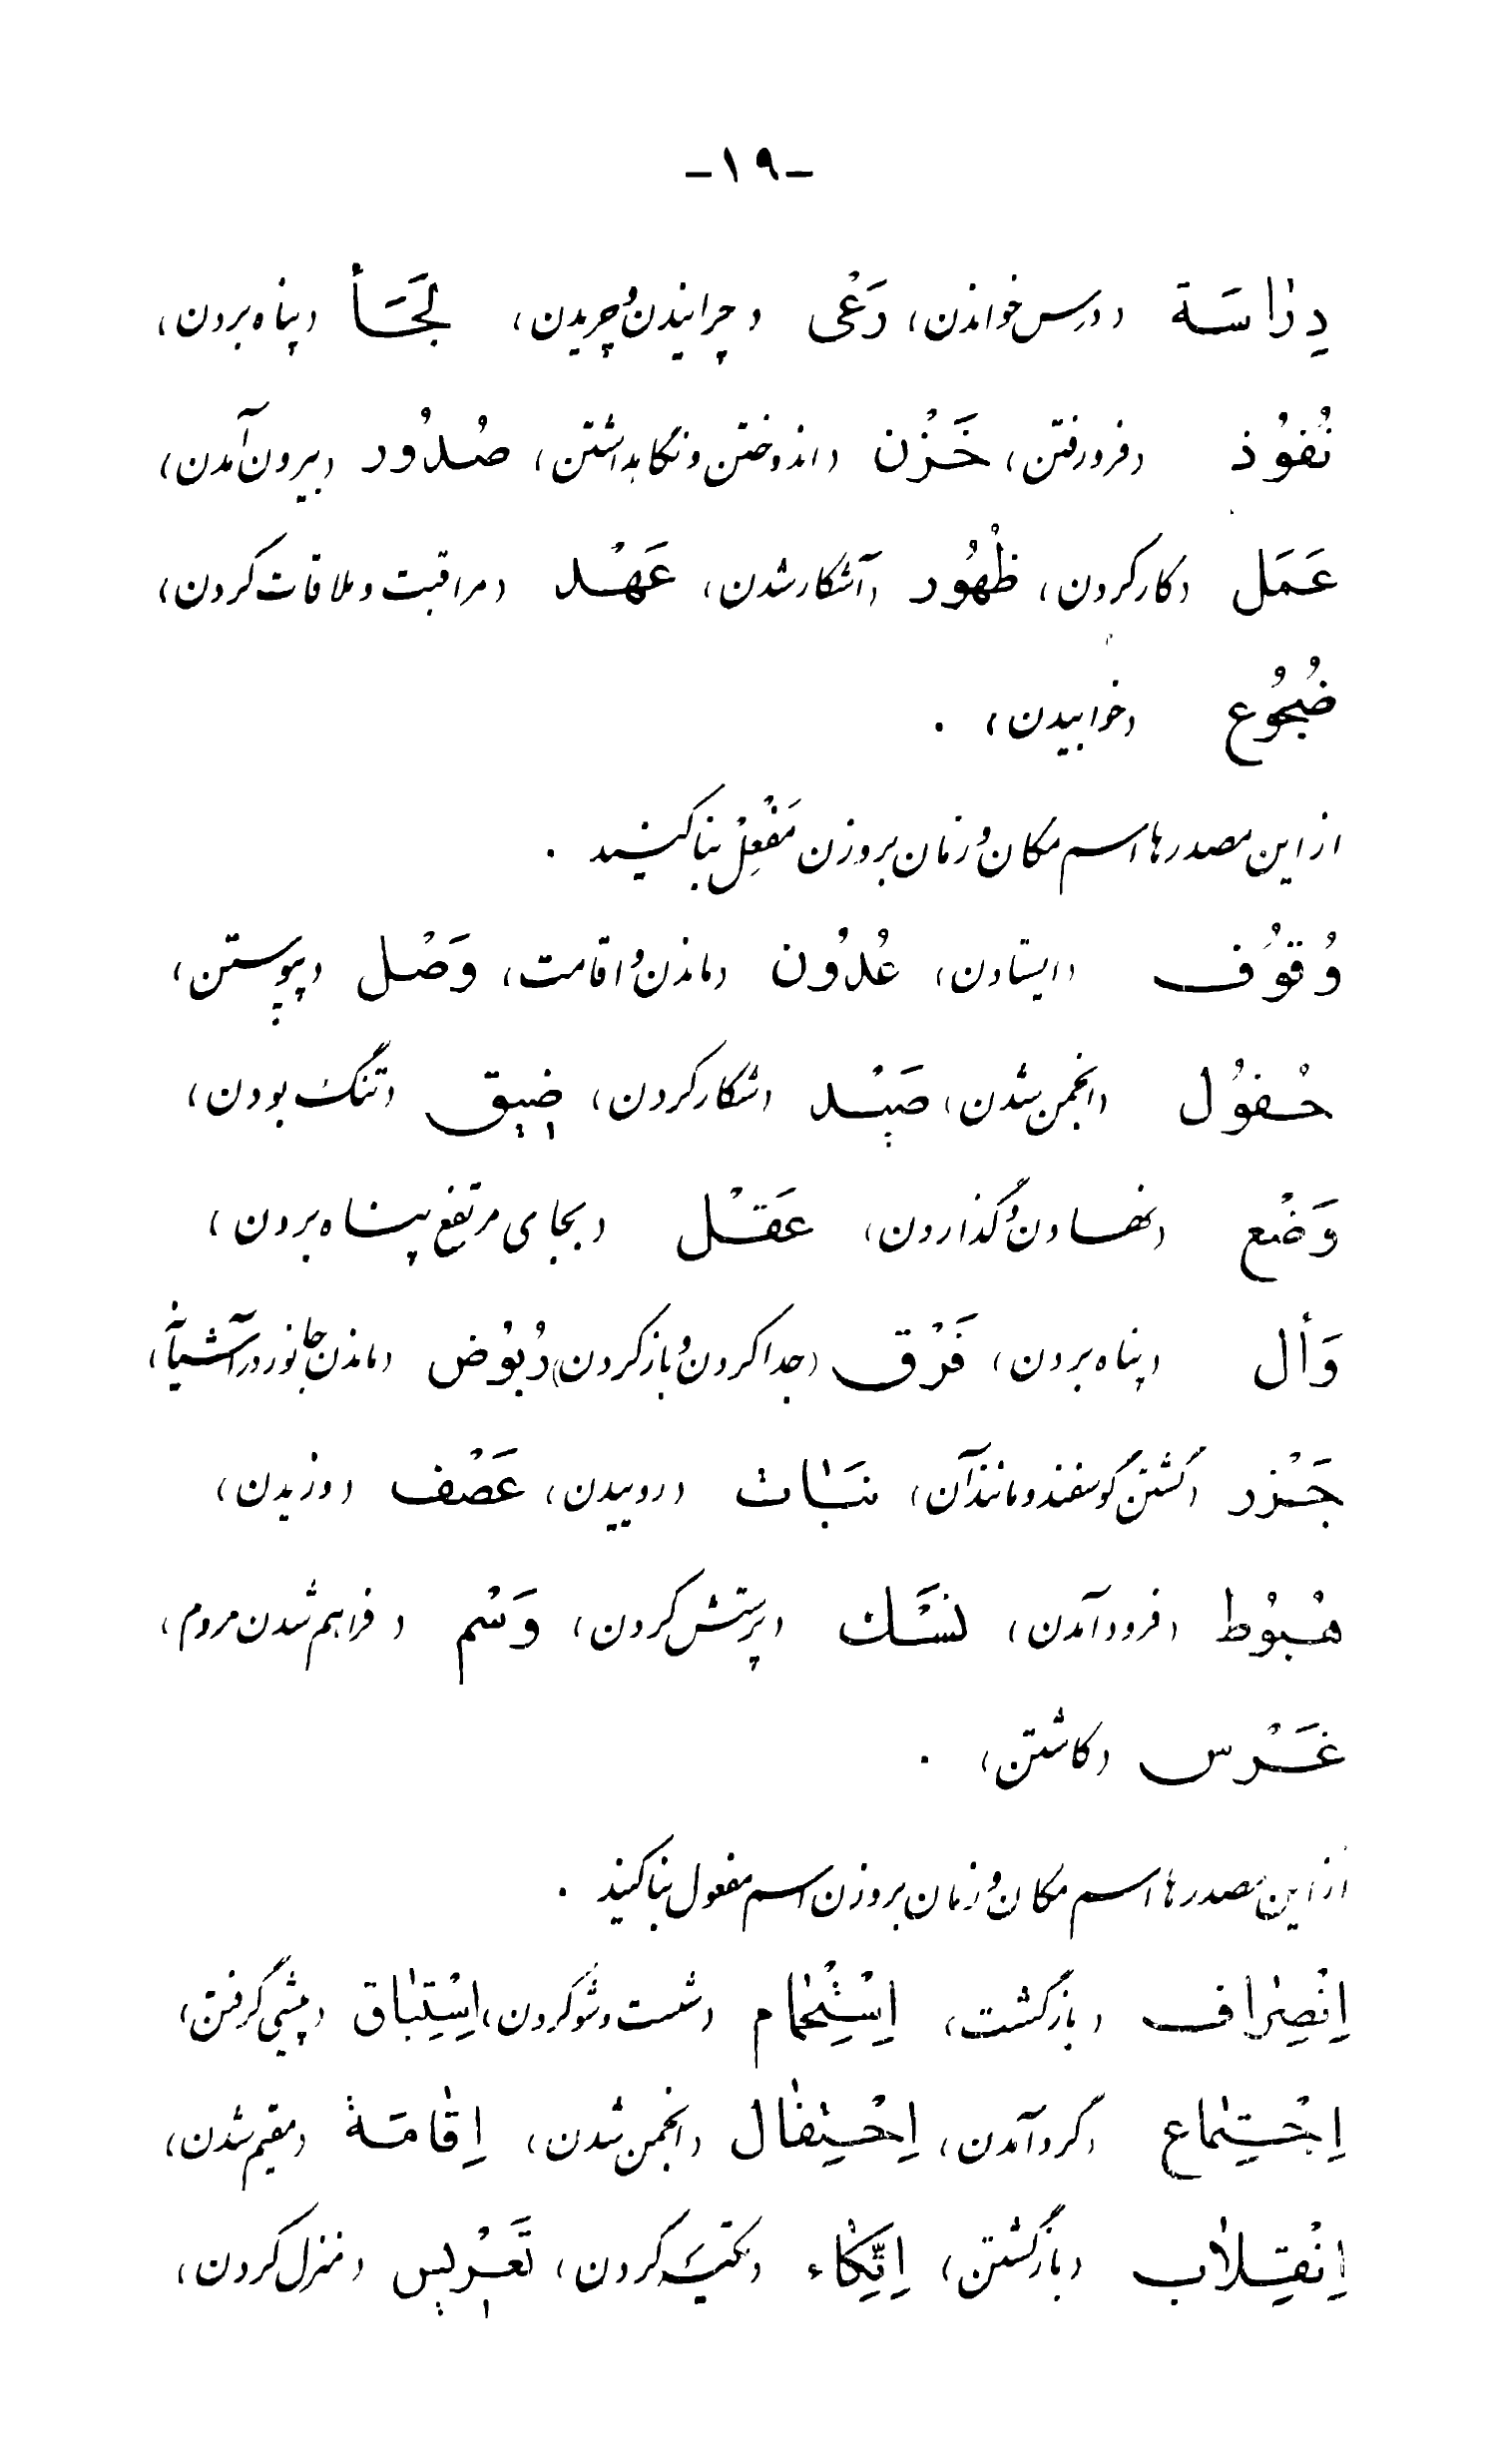 -۱۹-
دِرٰاسَة (درس خواندن) رَعْی (چرانیدن و چریدن) لَجَأ (پناه بردن)
نُفُوُذ (فرو رفتن) خَزْن (اندوختن و نگاهداشتن) صُدُور (بیرون آمدن)
عَمَل (کار کردن) ظُهُور (آشکار شدن) عَهْد (مراقبت و ملاقات کردن)
ضُجُوُع (خوابیدن) .
از این مصدرها اسم مکان و زمان بر وزن مَفْعِلْ بنا کنید .
وُقوُف (ایستادن) عُدُون (ماندن و اقامت) وَصْل (پیوستن)
حُفوُل (انجمن شدن) صَیْد (شکار کردن) ضیِق (تنگ بودن)
وَضْع (نهادن و گذاردن) عَقْل (بجای مرتفع پناه بردن)
وَأل (پناه بردن) فَرْق (جدا کردن و باز کردن) رُبوُض (ماندن جانور در آشیانه)
جَزْر (کشتن گوسفند و مانند آن) نَبٰات (روییدن) عَصْف (وزیدن)
هُبوُط (فرود آمدن) نَسْك (پرستش کردن) وَسْم (فراهم شدن مردم)
غَرْس (کاشتن) .
از این مصدرها اسم مکان و زمان بر وزن اسم مفعول بنا کنید .
اِنْصِرٰاف (بازگشت) اِسْتِحْمٰام (شست و شو کردن) اِسْتِبٰاق (پیشی گرفتن)
اِجْتِمٰاع (گرد آمدن) اِحْتِفٰال (انجمن شدن) اِقٰامَة (مقیم شدن)
اِنْقِلٰاب (بازگشتن) اِتِّكٰاء (تکیه کردن) تَعْریِس (منزل کردن)